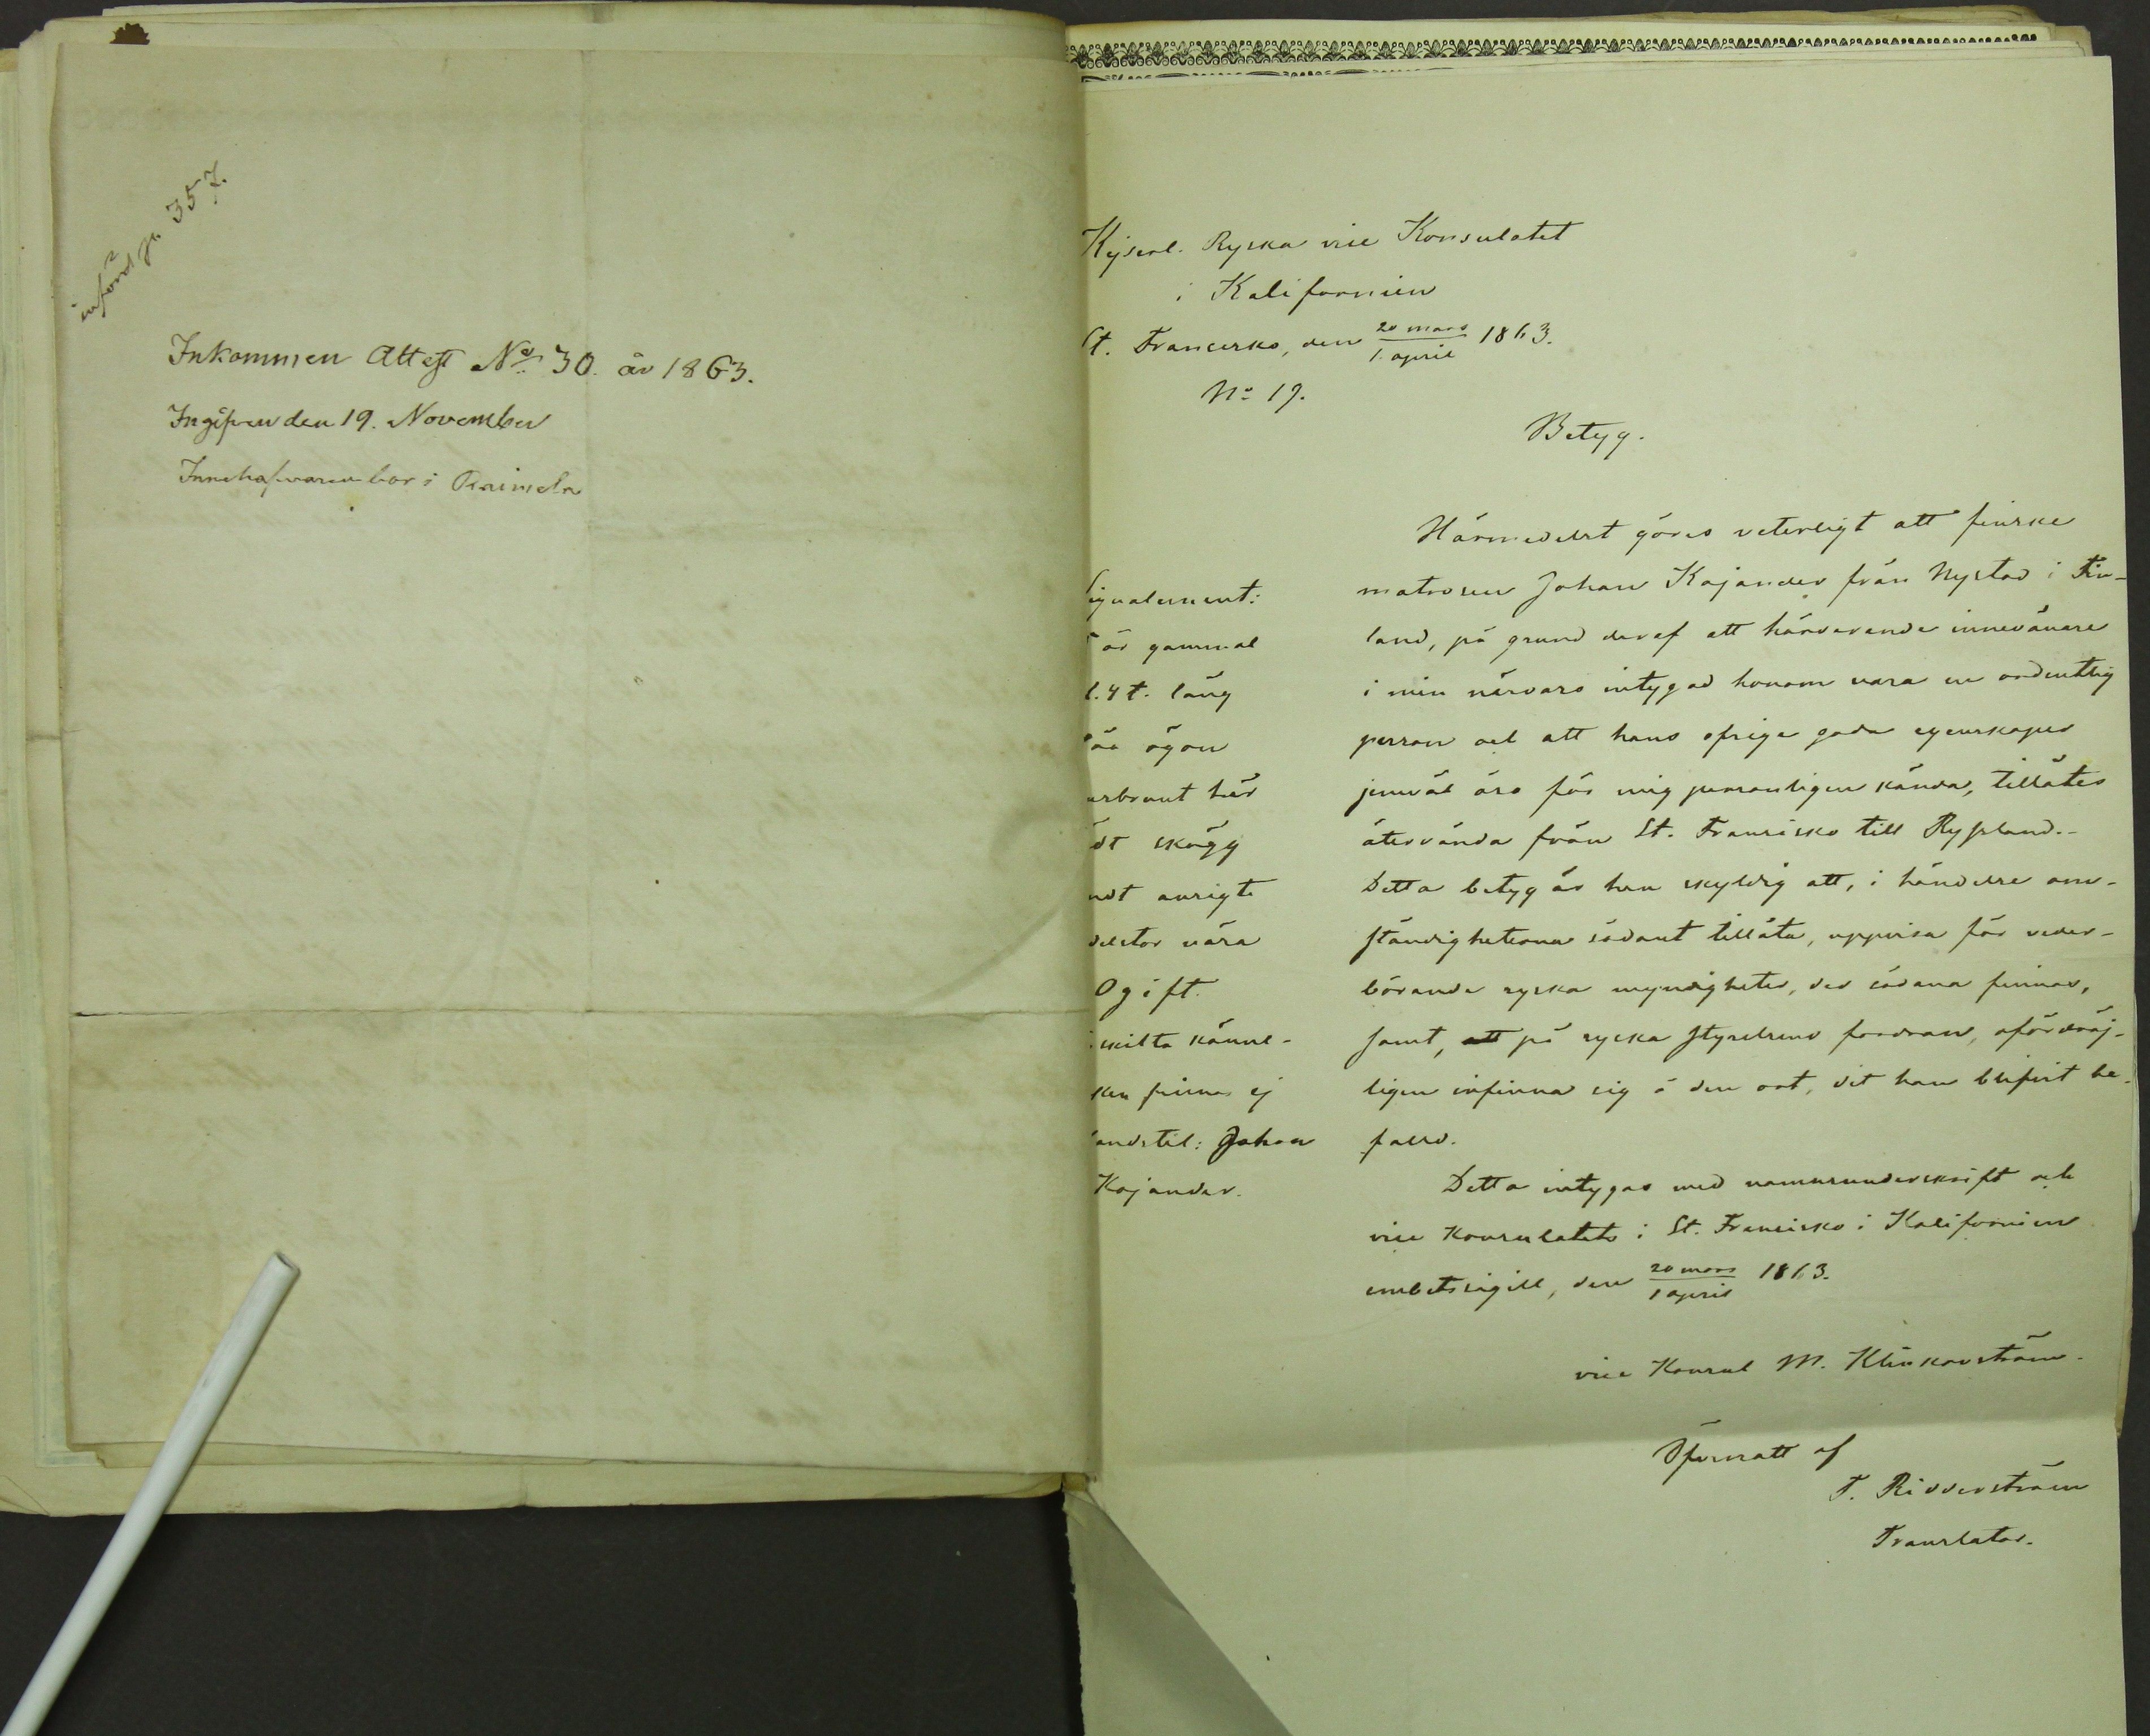 införd p. 357.
Inkommen Attest No 30. år 1863.
Ingifven den 19. November
Innehafvaren bor i
Kejserl. Ryska vice Konsulatet
i Kalifornien
St. Francisko, den 20 mars / 1 april 1863.
No 19.
Betyg.
Härmedelst göres veterligt att finske
matrosen Johan Kajander från Nystad i Fin-
land, på grund deraf att härvarande innevånare
i min närvaro intygad honom vara en ordentlig
person och att hans öfriga goda egenskaper
jemväl äro för mig personligen kända, tillåtes
återvända från St. Francisko till Ryssland.-
Detta betyg är han skyldig att, i händelse om-
ständigheterna sådant tillåta, uppvisa för veder-
börande ryska myndigheter, der sådana finnas,
samt, att på ryska styrelsens fordran, ofördröj-
ligen infinna sig å den ort, dit han blifvit be-
falld.
Detta intygas med namnunderskrift och
vice Konsulatets i St. Francisko i Kalifornien
embetssigill, den 20 mars / 1 april 1863.
vice Konsul M. Klinkovström.
Öfversatt af
F. Ridderström
Translator.
Signalement:
år gammal
l. 4 t. lång
ögon
hår
skägg
ansigte
näsa
Ogift.
skilta känne-
ken finnas ej
andstil: Johan
Kajander.